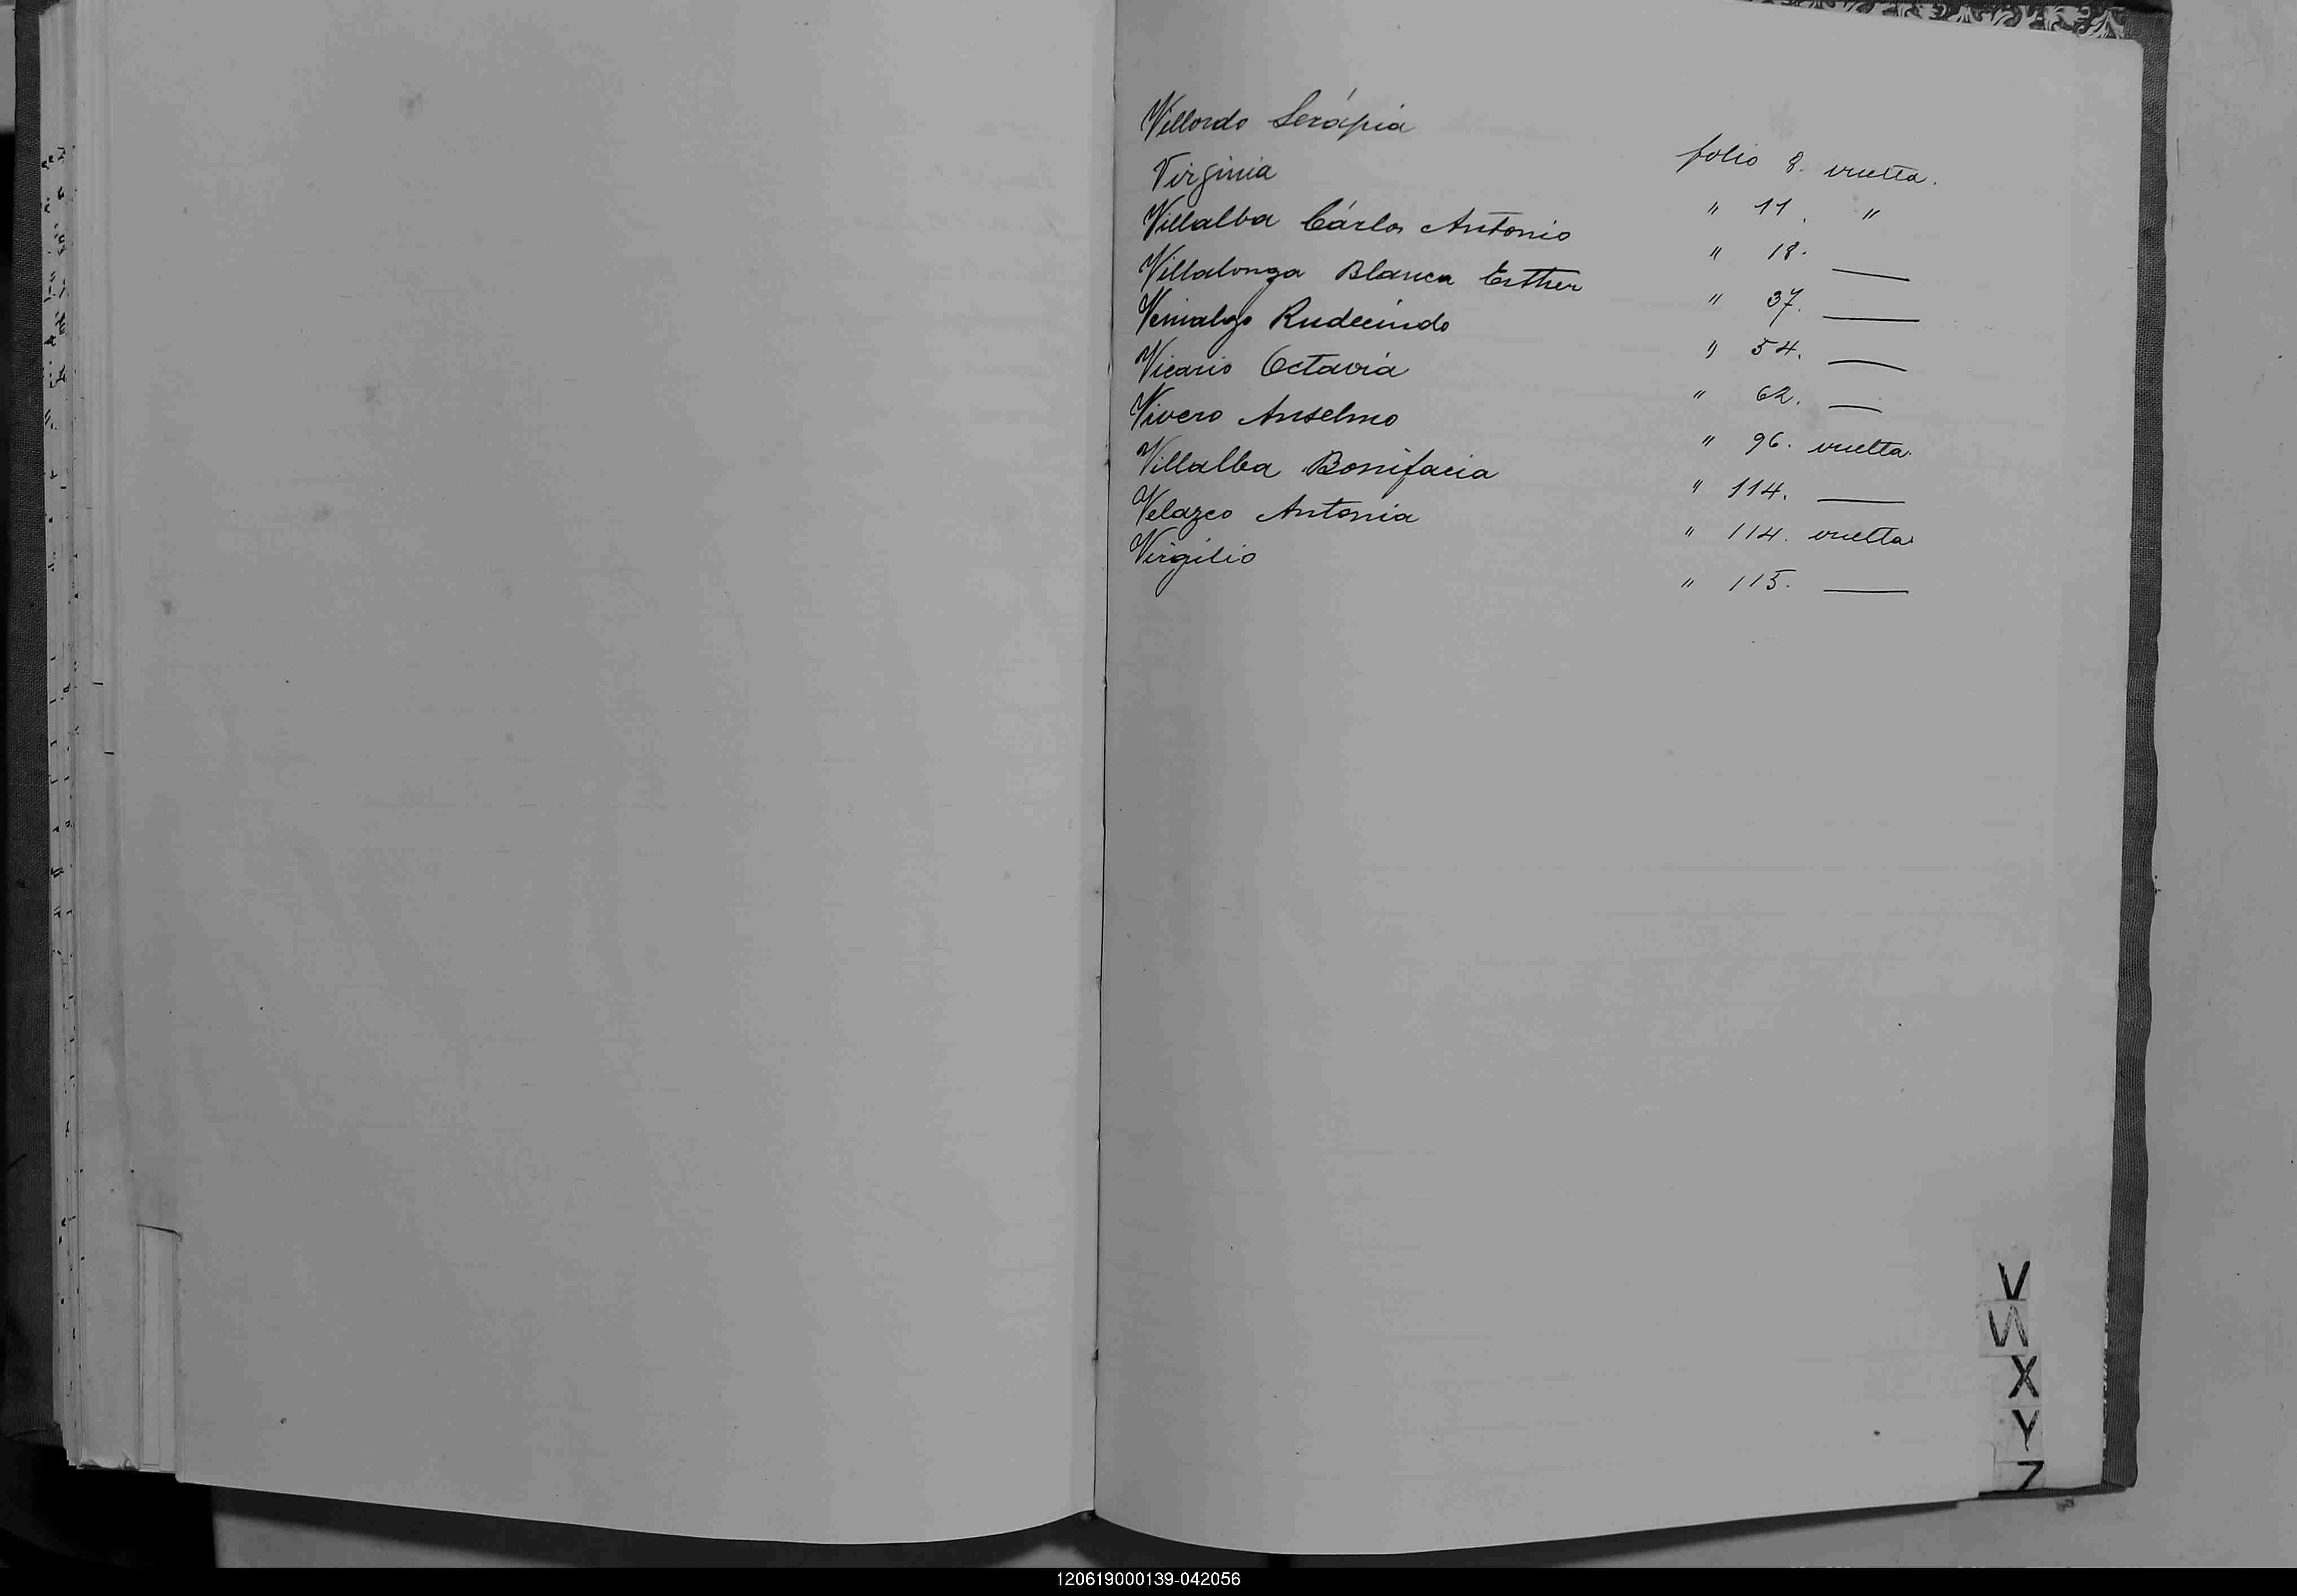 Villordo Serápia folio 8. vuelta.
Virginia " 11. "
Villalba Cárlos Antonio " 18. —
Villalonga Blanca Esther " 37. —
Venialgo Rudecindo " 54. —
Vicario Octavia " 62. —
Vivero Anselmo " 96. vuelta.
Villalba Bonifacia " 114. —
Velazco Antonia " 114. vuelta
Virgilio " 115. —
V
W
X
Y
Z
120619000139-042056